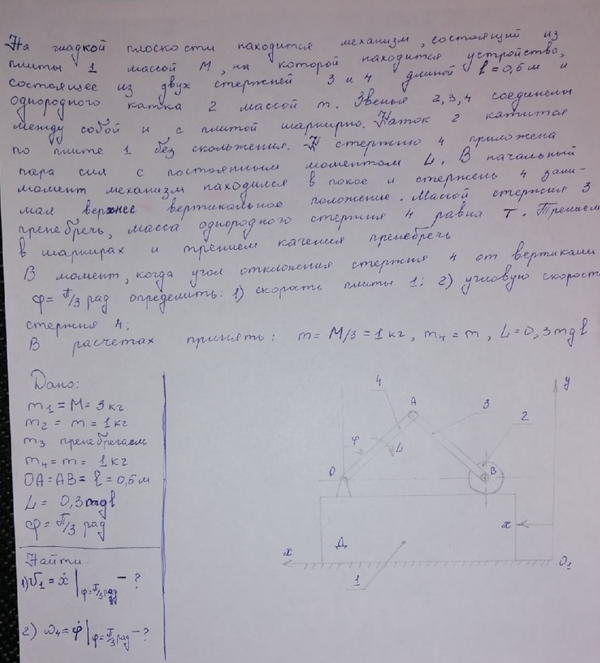 На гладкой плоскости находится механизм, состоящий из
плиты 1 массой М, на которой находится устройство,
состоящее из двух стержней 3 и 4 длиной l = 0,6 м и
однородного катка 2 массой m. Звенья 2,3,4 соединены
между собой и с плитой шарнирно. Каток 2 катится
по плите 1 без скольжения. К стержню 4 приложена
пара сил с постоянным моментом L. В начальный
момент механизм находился в покое и стержень 4 зани-
мал верхнее вертикальное положение. Массой стержня 3
пренебречь, масса однородного стержня 4 равна т. Трением
в шарнирах и трением качения пренебречь
В момент, когда угол отклонения стержня 4 от вертикали
φ = π/3 рад определить: 1) скорость плиты 1; 2) угловую скорость
стержня 4;
В расчетах принять: m = M/3 = 1 кг, m4 = m, L = 0,3mgl
Дано:
m1 = M = 3 кг
m2 = m = 1 кг
m3 пренебрегаем
m4 = m = 1 кг
OA = AB = l = 0,6 м
L = 0,3mgl
φ = π/3 рад
Найти
1) v1 = ẋ |φ=π/3 рад - ?
2) ω4 = φ̇ |φ=π/3 рад - ?
4
A
3
2
y
φ
L
O
B
x
x
Д
1
O1